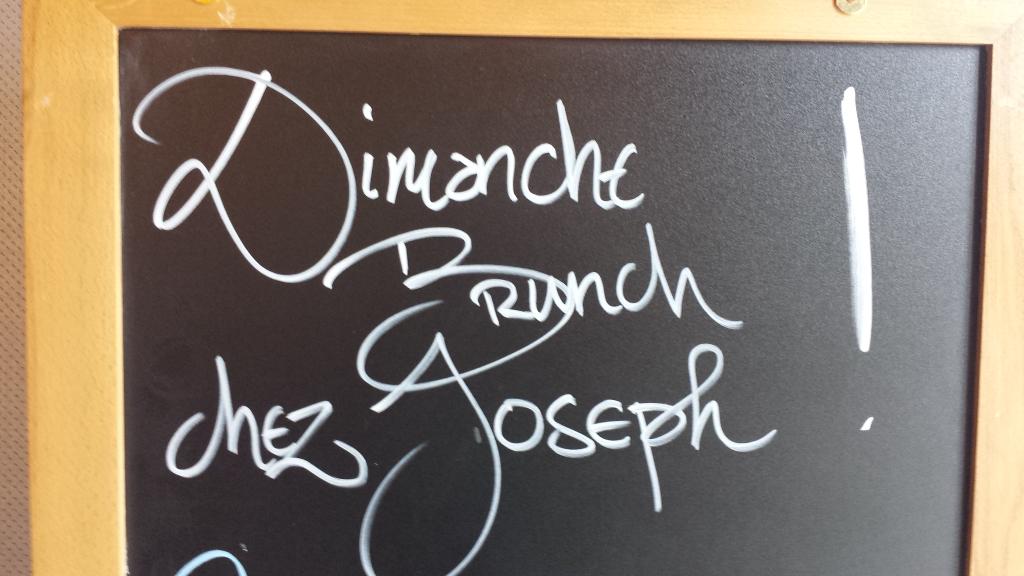 Dimanche !
Brunch
chez Joseph